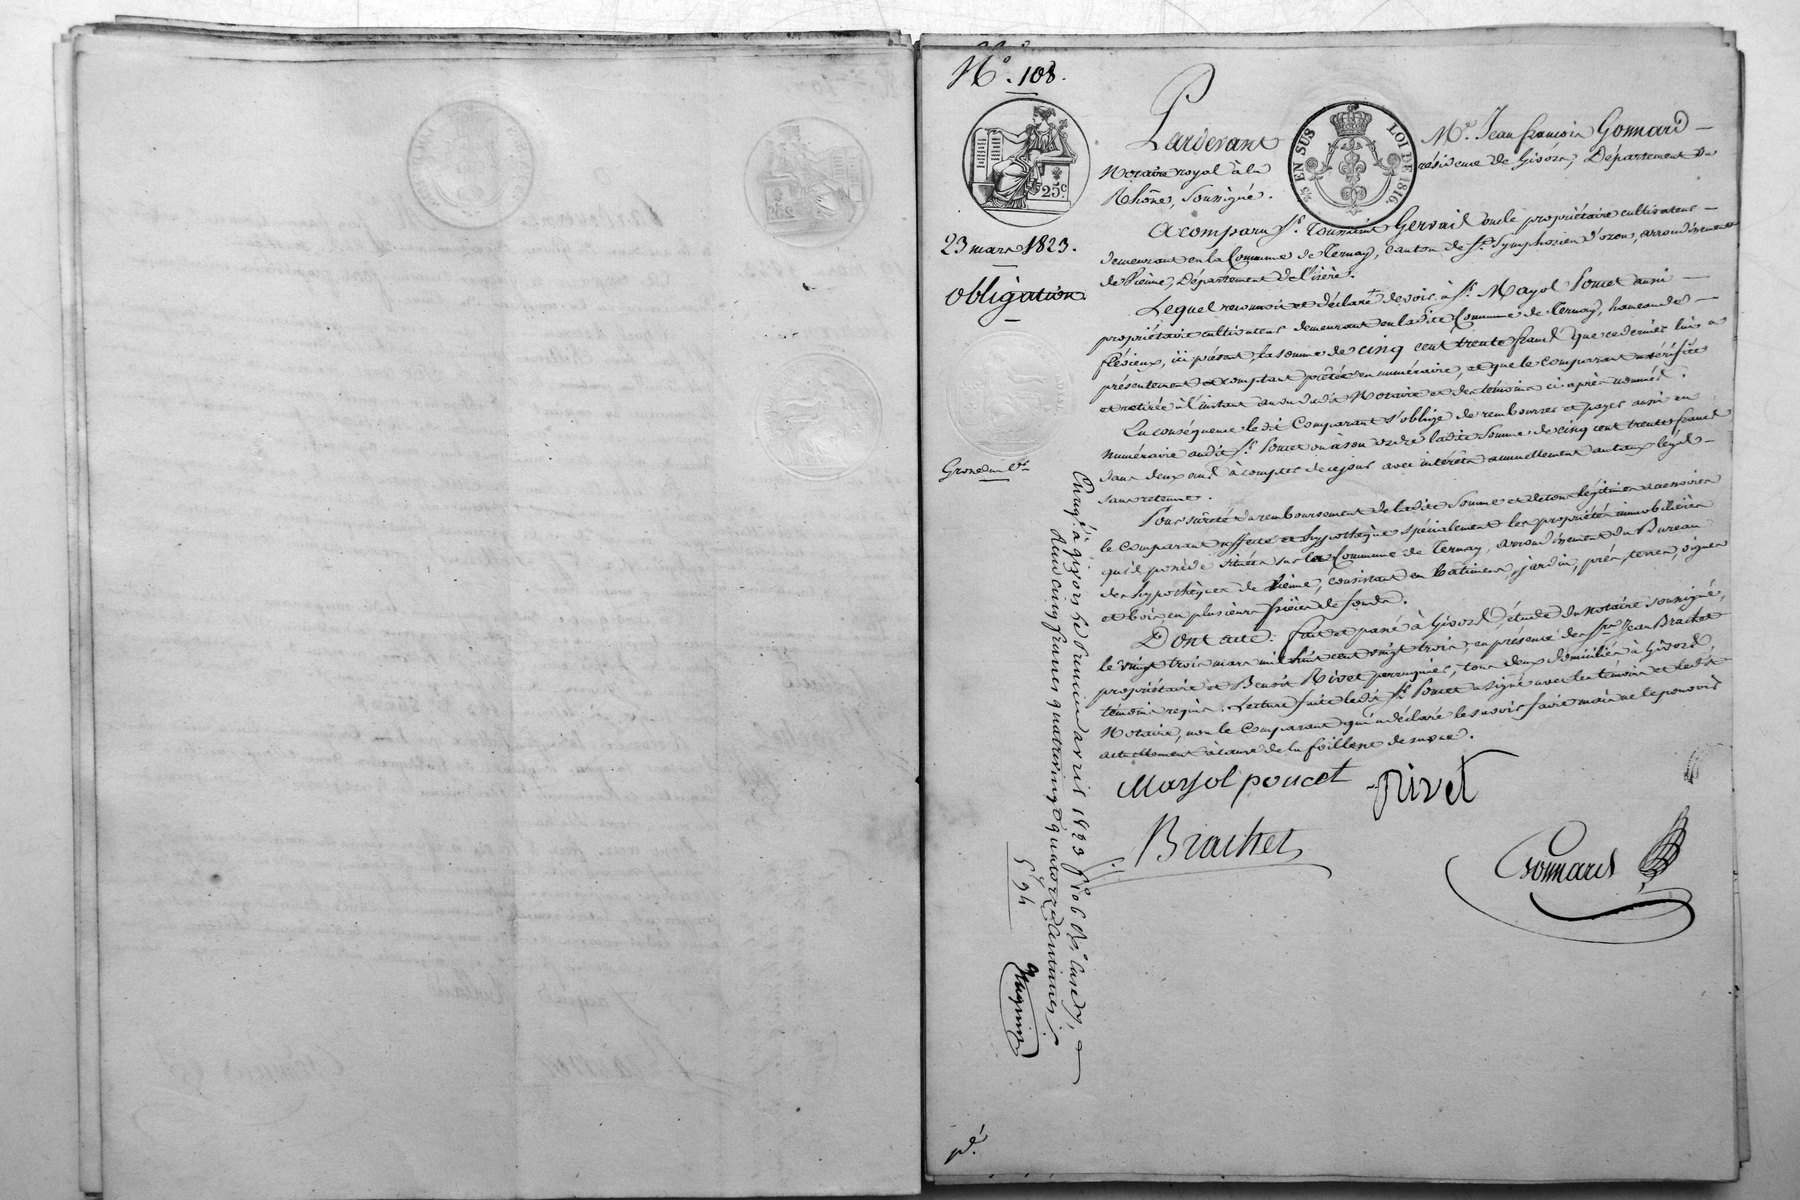 N.º 108.
25 c
25 EN SUS
LOI DE 1816
23 mars 1823.
Obligation
Grosse
Pardevant Me. Jean françois Gonnard
Notaire royal à la résidence de Givors, Département du
Rhône, soussigné.
A comparu Sr. Toussaint Gervais propriétaire cultivateur
demeurant en la Commune de Ternay, canton de St. Symphorien d'ozon, arrondissement
de Vienne, Département de l'isère.
Lequel reconnoit et déclare devoir à Sr. Mayol Poncet aussi
propriétaire cultivateur demeurant en ladite Commune de Ternay, hameau de
flévieux, ici présent, la somme de cinq cent trente francs que ce dernier lui a
présentement et comptant prêtée en numéraire, et que le comparant a vérifiée
et retirée à l'instant au vu dudit Notaire et des témoins ci après nommés.
En conséquence ledit Comparant s'oblige de rembourser et payer aussi en
numéraire audit Sr. Poncet ou à son ordre ladite somme de cinq cent trente francs
dans deux ans à compter de ce jour avec intérêts annuellement au taux légal
sans retenue.
Pour sûreté du remboursement de ladite somme et de tous légitimes accessoires
le comparant affecte et hypothèque spécialement les propriétés immobilières
qu'il possède situées sur la Commune de Ternay, arrondissement du Bureau
des hypothèques de Vienne, consistant en bâtimens, jardin, prés, terres, vignes
et bois en plusieurs pièces de fonds.
Dont acte. fait et passé à Givors, étude du notaire soussigné,
le vingt trois mars mil huit cent vingt trois, en présence des Srs. Jean Brachet
propriétaire et Benoît Rivet perruquier, tous deux domiciliés à Givors,
témoins requis. Lecture faite ledit Sr. Poncet a signé avec les témoins et ledit
Notaire, non le comparant qui a déclaré le savoir faire mais ne le pouvoir
actuellement à cause de la foiblesse de sa vue.
Mayol poncet
Rivet
Brachet
Gonnard
Enreg. à givors le premier avril 1823 fo. 106 Ro. Case 7,
Reçu cinq francs quatre vingt quatorze centimes
5 f 94